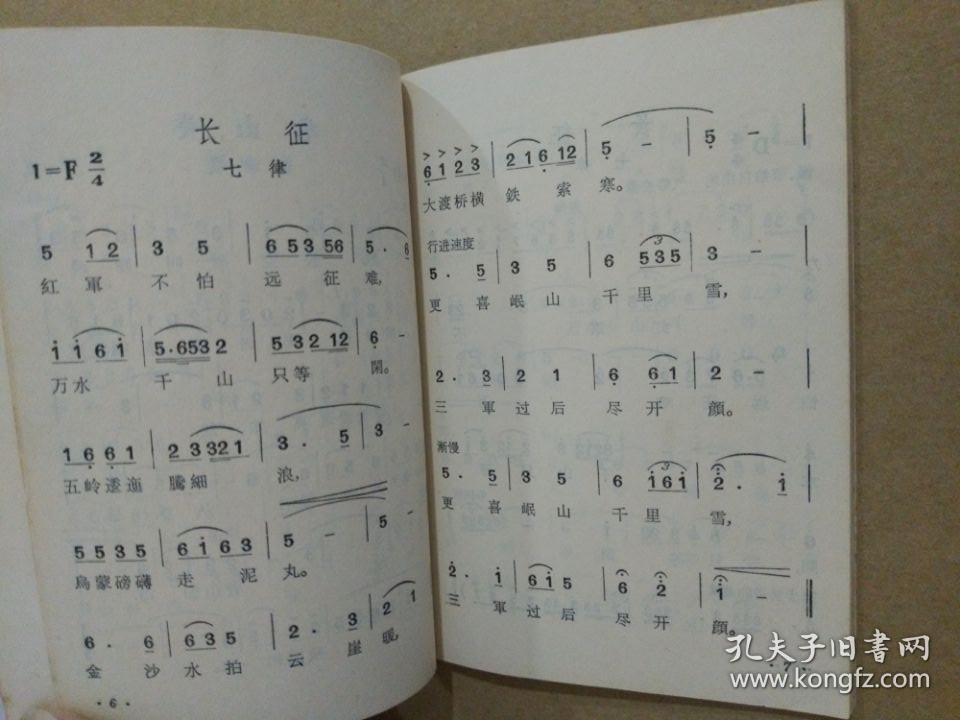 长 征
七 律
1=F 2/4
5 1 2 | 3 5 | 6 5 3 5 6 | 5 . 6 |
紅 軍 不 怕 远 征 难,
1 1 6 1 | 5 . 6 5 3 2 | 5 3 2 1 2 | 6 . -
万 水 千 山 只 等 閑。
1 6 6 1 | 2 3 3 2 1 | 3 . 5 | 3 -
五 岭 逶 迤 騰 細 浪,
5 5 3 5 | 6 1 6 3 | 5 - | 5 -
烏 蒙 磅 礴 走 泥 丸。
6 . 6 | 6 3 5 | 2 . 3 | 2 1
金 沙 水 拍 云 崖 暖,
· 6 ·
6 1 2 3 | 2 1 6 1 2 | 5 - | 5 - |
大 渡 桥 横 鉄 索 寒。
行进速度
5 . 5 | 3 5 | 6 5 3 5 | 3 - |
更 喜 岷 山 千 里 雪,
2 . 3 | 2 1 | 6 6 1 | 2 - |
三 軍 过 后 尽 开 顏。
漸慢
5 . 5 | 3 5 | 6 1 6 1 | 2 . 1 |
更 喜 岷 山 千 里 雪,
2 . 1 | 6 1 5 | 6 2 | 1 - ‖
三 軍 过 后 尽 开 顏。
· 7 ·
孔夫子旧书网
www.kongfz.com